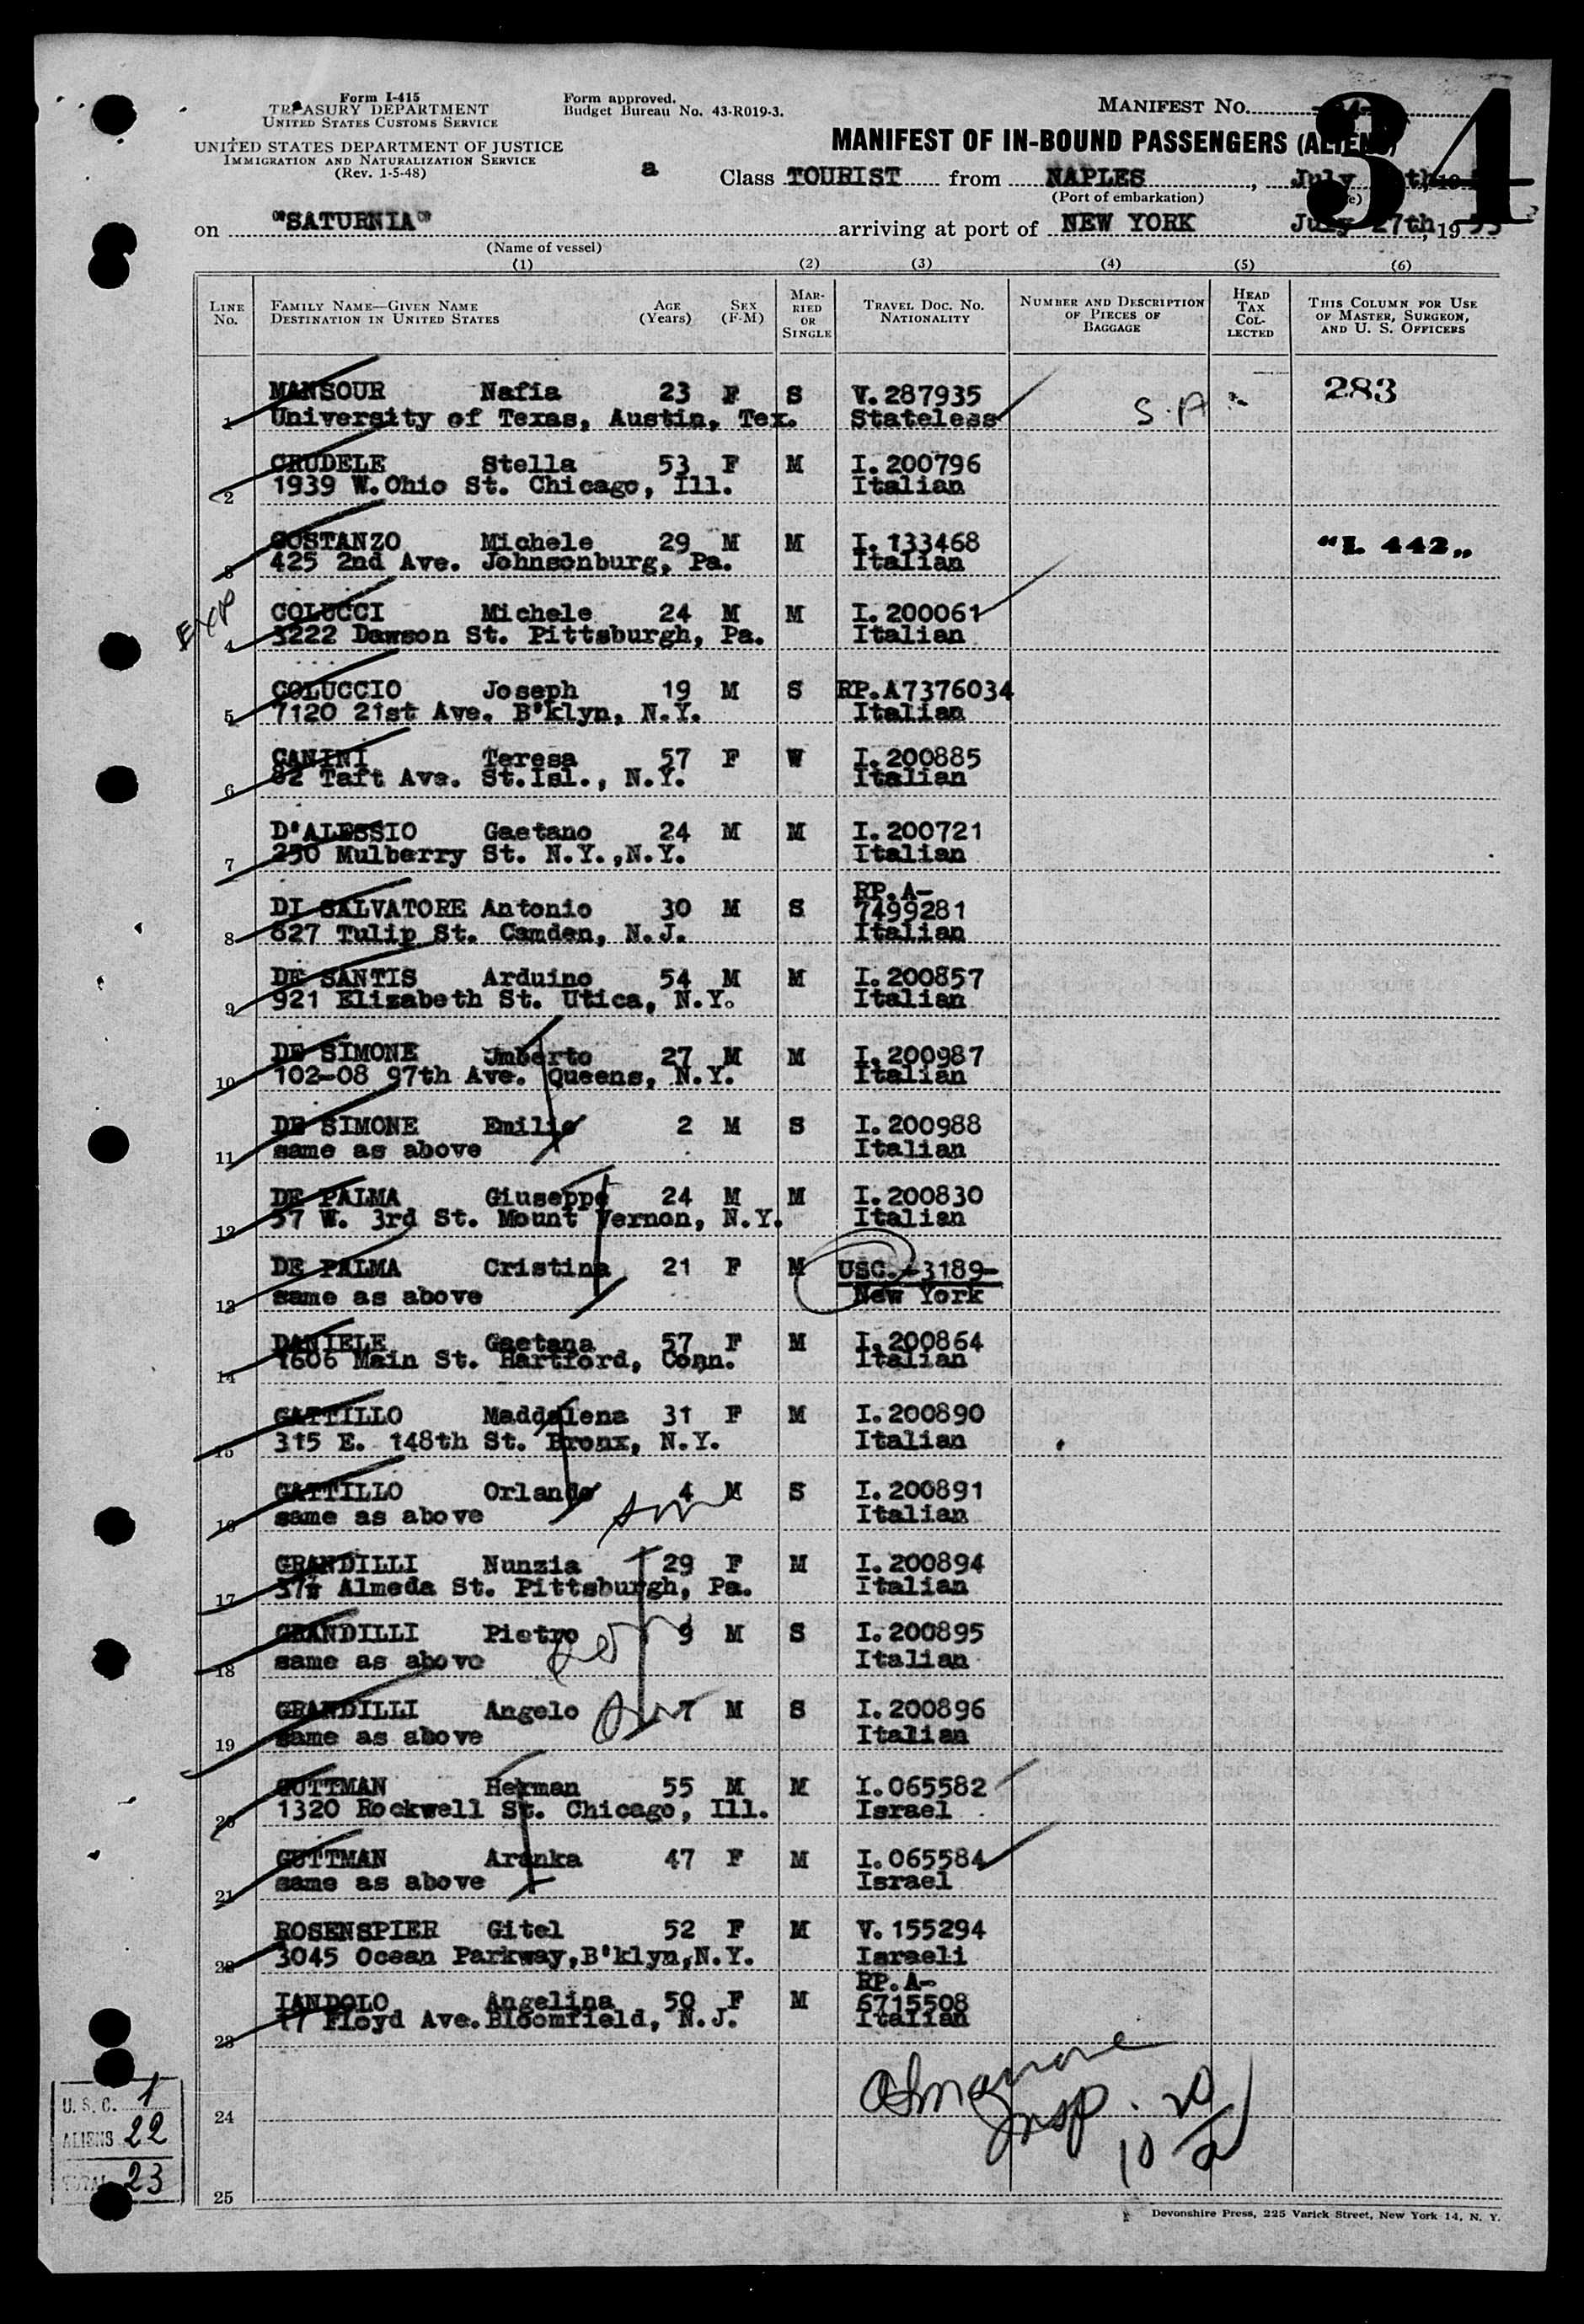 Form I-415
TREASURY DEPARTMENT
UNITED STATES CUSTOMS SERVICE
UNITED STATES DEPARTMENT OF JUSTICE
IMMIGRATION AND NATURALIZATION SERVICE
(Rev. 1-5-48)
Form approved.
Budget Bureau No. 43-R019-3.
MANIFEST NO.
34
MANIFEST OF IN-BOUND PASSENGERS (ALIENS)
a Class TOURIST from NAPLES, July th, 19
(Port of embarkation)
on "SATURNIA" arriving at port of NEW YORK July 27th, 1953
(Name of vessel)
(1) (2) (3) (4) (5) (6)
LINE No.
FAMILY NAME—GIVEN NAME
DESTINATION IN UNITED STATES
AGE (Years)
SEX (F-M)
MARRIED OR SINGLE
TRAVEL DOC. NO. NATIONALITY
NUMBER AND DESCRIPTION OF PIECES OF BAGGAGE
HEAD TAX COLLECTED
THIS COLUMN FOR USE OF MASTER, SURGEON, AND U. S. OFFICERS
1 MANSOUR Nafia 23 F S V.287935 S.A. 283
University of Texas, Austin, Tex. Stateless
2 CRUDELE Stella 53 F M I.200796
1939 W.Ohio St. Chicago, Ill. Italian
3 COSTANZO Michele 29 M M I.133468 "I. 442"
425 2nd Ave. Johnsonburg, Pa. Italian
EXP
4 COLUCCI Michele 24 M M I.200061
3222 Dawson St. Pittsburgh, Pa. Italian
5 COLUCCIO Joseph 19 M S RP.A7376034
7120 21st Ave. B'klyn, N.Y. Italian
6 CANINI Teresa 57 F W I.200885
82 Taft Ave. St.Isl., N.Y. Italian
7 D'ALESSIO Gaetano 24 M M I.200721
250 Mulberry St. N.Y.,N.Y. Italian
8 DI SALVATORE Antonio 30 M S RP.A-7499281
827 Tulip St. Camden, N.J. Italian
9 DE SANTIS Arduino 54 M M I.200857
921 Elizabeth St. Utica, N.Y. Italian
10 DE SIMONE Umberto 27 M M I.200987
102-08 97th Ave. Queens, N.Y. Italian
11 DE SIMONE Emilio 2 M S I.200988
same as above Italian
12 DE PALMA Giuseppe 24 M M I.200830
37 W. 3rd St. Mount Vernon, N.Y. Italian
13 DE PALMA Cristina 21 F M USC.-3189-
same as above New York
14 DANIELE Gaetana 57 F M I.200864
1606 Main St. Hartford, Conn. Italian
15 GATTILLO Maddalena 31 F M I.200890
315 E. 148th St. Bronx, N.Y. Italian
16 GATTILLO Orlando 4 M S I.200891
same as above Italian
17 GRANDILLI Nunzia 29 F M I.200894
37½ Almeda St. Pittsburgh, Pa. Italian
18 GRANDILLI Pietro 9 M S I.200895
same as above Italian
19 GRANDILLI Angelo 7 M S I.200896
same as above Italian
20 GUTTMAN Herman 55 M M I.065582
1320 Rockwell St. Chicago, Ill. Israel
21 GUTTMAN Aranka 47 F M I.065584
same as above Israel
22 ROSENSPIER Gitel 52 F M V.155294
3045 Ocean Parkway,B'klyn,N.Y. Israeli
23 IANDOLO Angelina 50 F M RP.A-6715508
17 Floyd Ave.Bloomfield, N.J. Italian
24
Insp. 20
25
U. S. C. 1
ALIENS 22
TOTAL 23
Devonshire Press, 225 Varick Street, New York 14, N. Y.